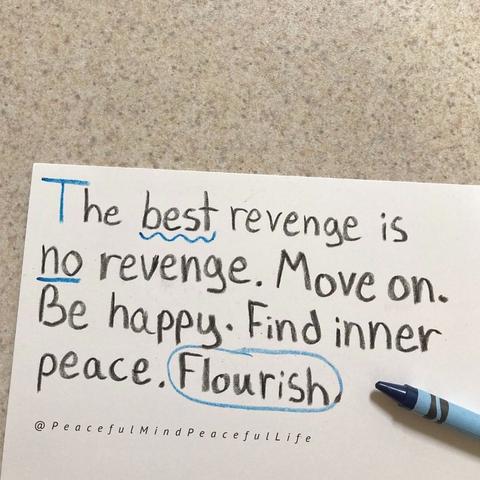 The best revenge is
no revenge. Move on.
Be happy. Find inner
peace. Flourish.
@PeacefulMindPeacefulLife